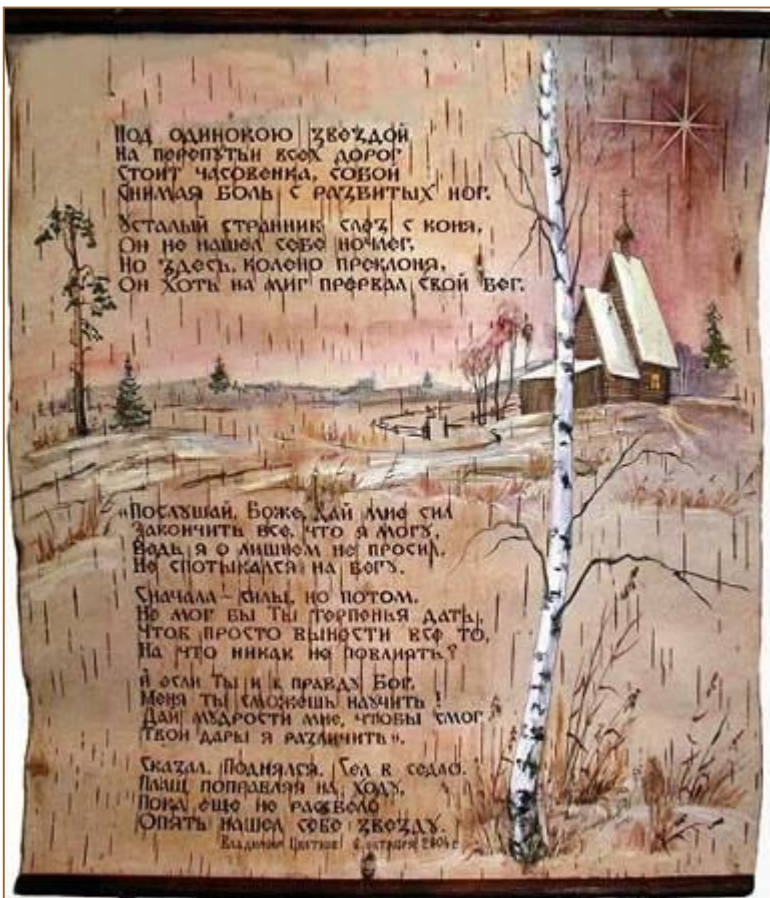 Под одинокою звездой
На перепутьи всех дорог
Стоит часовенка, собой
Снимая боль с разбитых ног.
Усталый странник слез с коня,
Он не нашел себе ночлег,
Но здесь, колено преклоня,
Он хоть на миг прервал свой бег.
«Послушай, Боже, дай мне сил
Закончить все, что я могу,
Ведь я о лишнем не просил,
Не спотыкался на бегу.
Сначала – силы, но потом,
Не мог бы Ты терпенья дать,
Чтоб просто вынести все то,
На что никак не повлиять?
И если Ты и в правду Бог,
Меня ты сможешь научить!
Дай мудрости мне, чтобы смог
Твои дары я различить».
Сказал. Поднялся. Сел в седло.
Плащ поправляя на ходу,
Пока еще не рассвело
Опять нашел себе звезду.
Владимир Цветков октября 2004 г